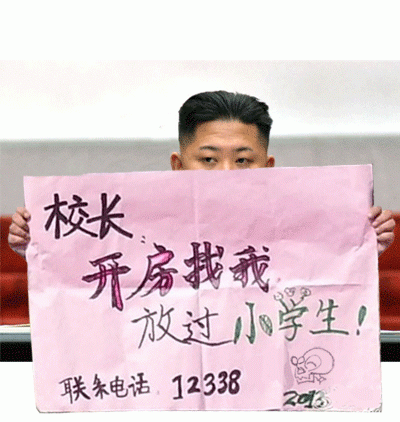 校长
开房找我
放过小学生!
联系电话 12338
2013